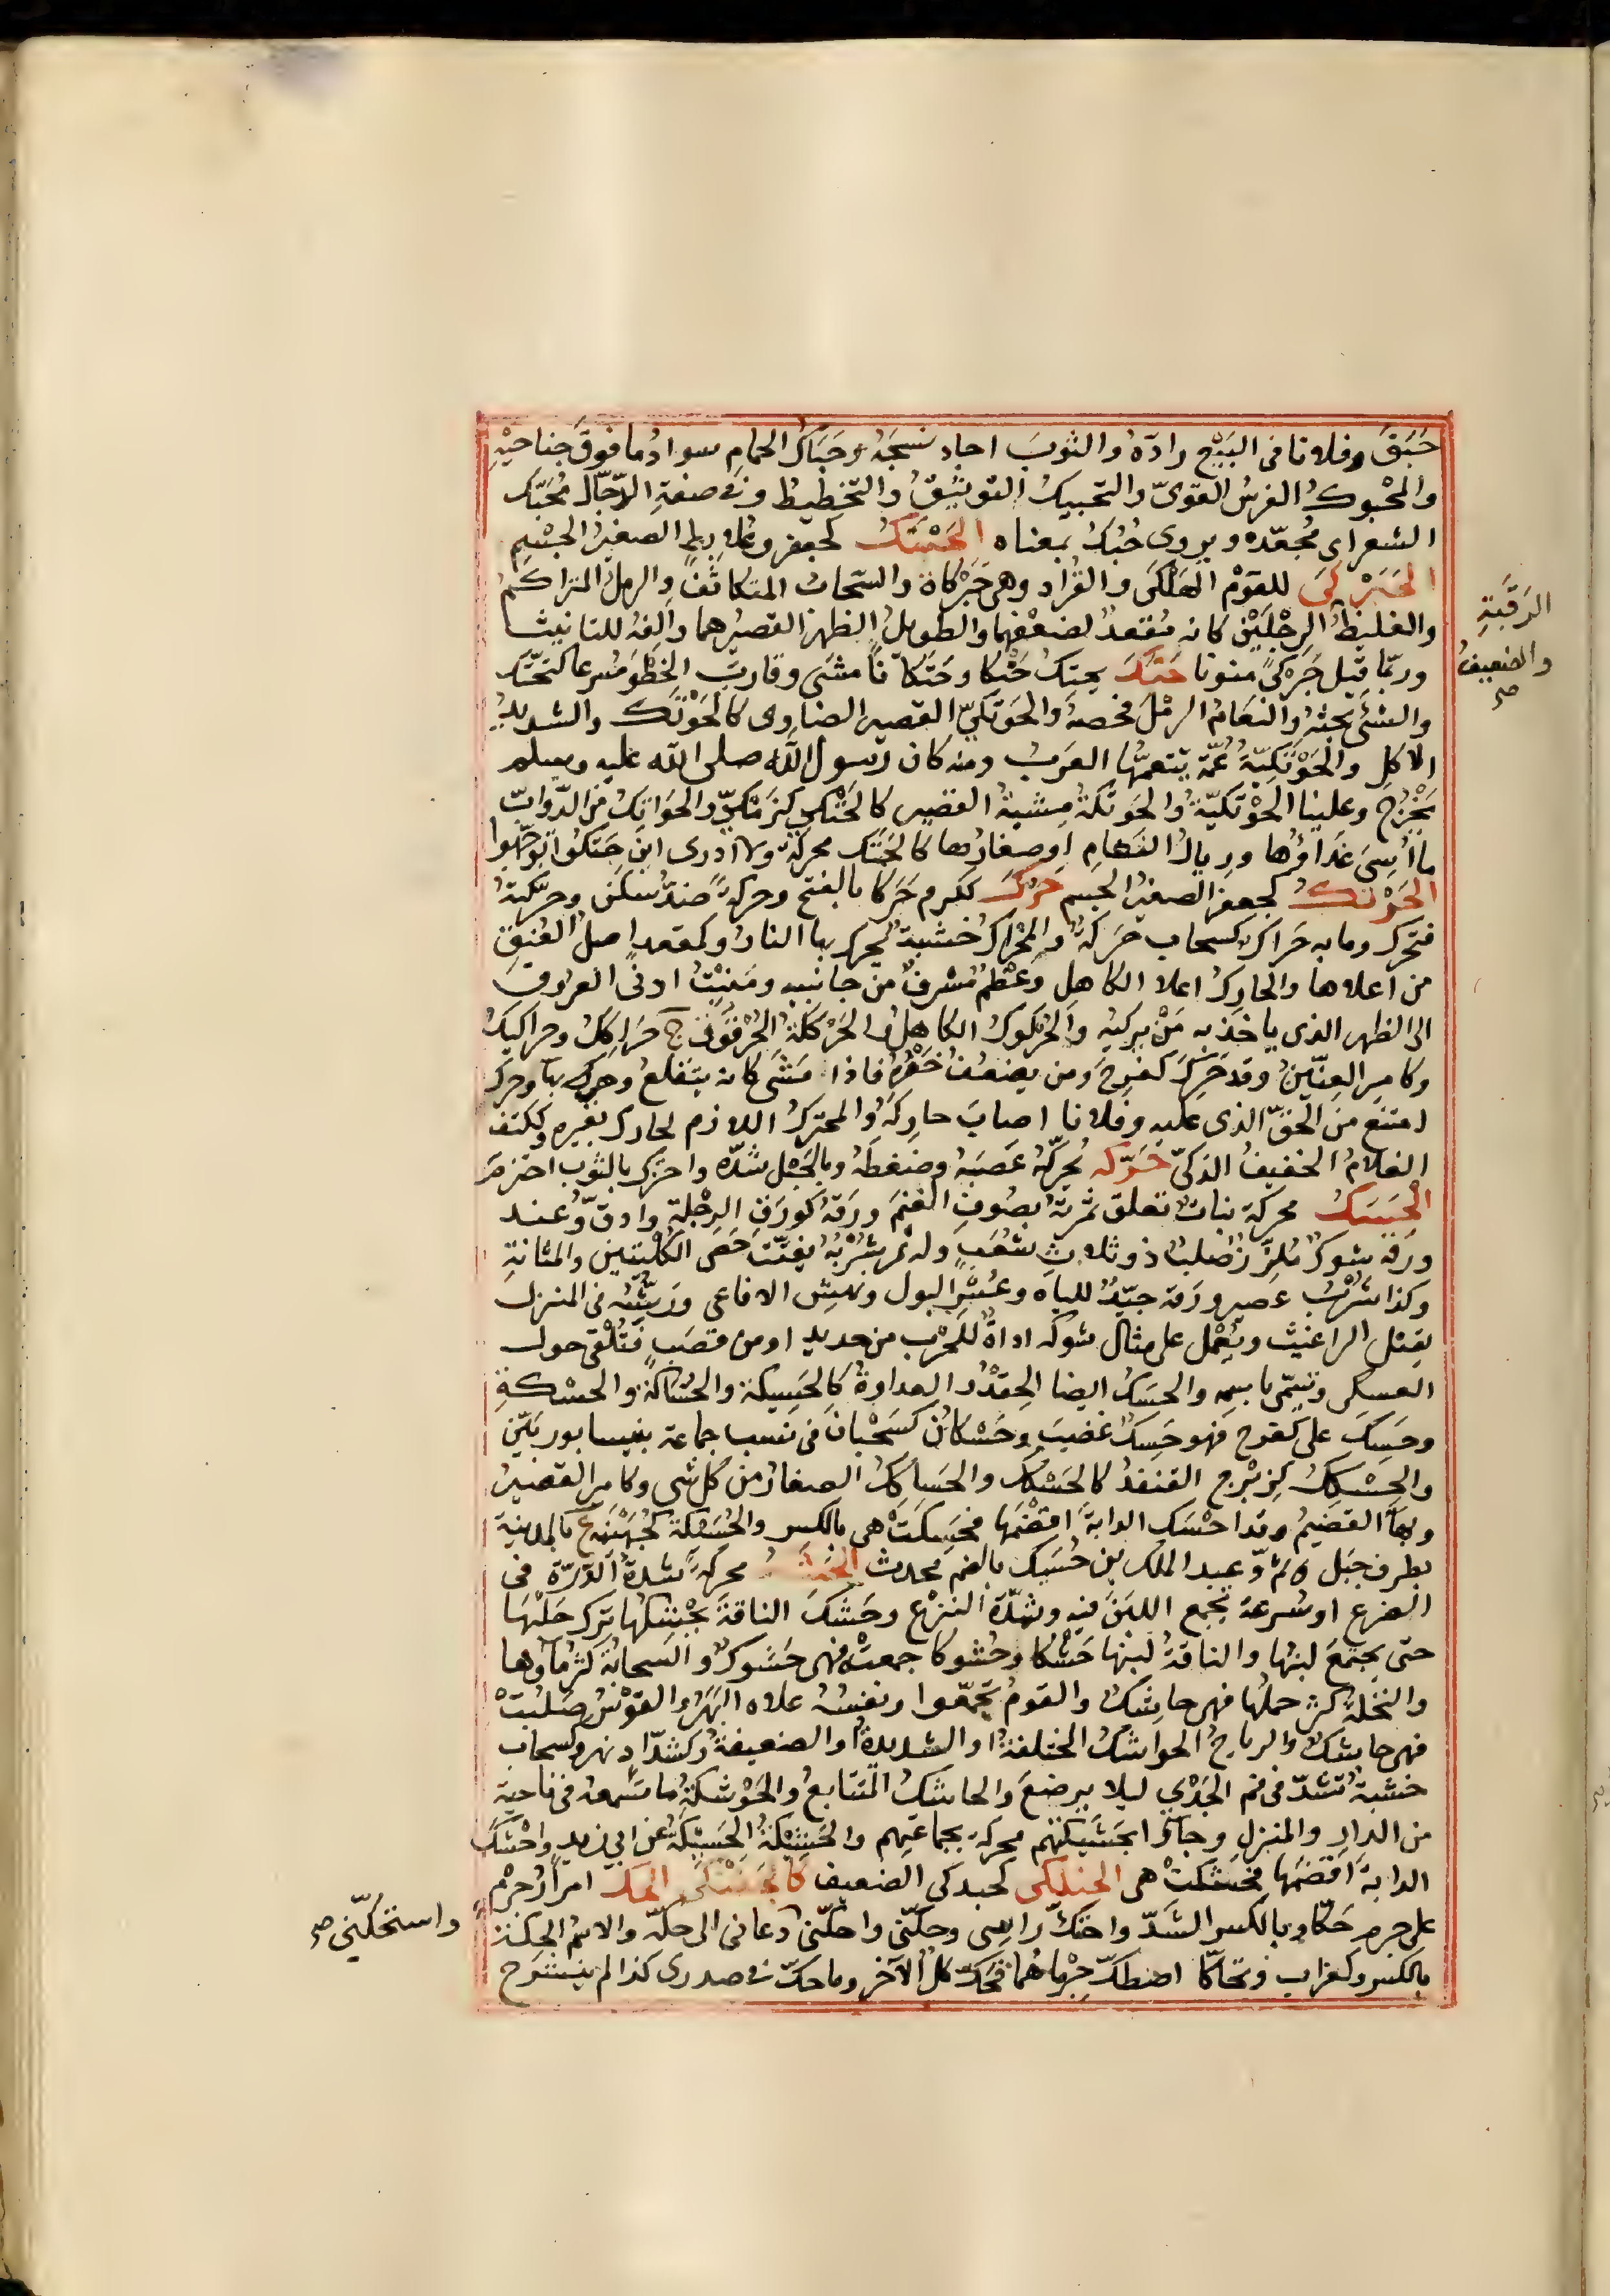 حَبَقَ وفلانا في البَيْع رادّهُ والثوبَ اجاد نسجَهُ وحَبَاكُ الحمامِ سوادُ ما فوقَ جناحَيْهِ
والمحْبوكُ الفرسُ القوىّ والتحبيكُ التوثيقُ والتخطيطُ وفى صفةِ الدّجّال مُحَبَّك
الشعراى مُجعّده ويروى حُبُك بمعناه الحَبْتَكُ كجعفر وعلابط الصغيرُ الجسْمِ
الحَبَرْكَى للقوْم الهَلْكَى والقُراد وهى حَبَرْكاة والسّحابُ المتكاثفُ والرملُ المتراكمُ
الرَقَبةِ
والضعيفُ
صح
والغليظُ الرجْلَيْن كانه مُقعدٌ لضعْفهما والطويلُ الظهرِ القصيرهما والفه للتانيث
وربّما قيل حَبَرْكىً منونا حَتَكَ يحتِك حَتْكا وحَتَكانًا مشَى وقاربَ الخَطْوَ مُسرعا كتحَتَّك
والشئَ بحثهُ والنعَامُ الرمْلَ فحصهُ والحَوْتَكىّ القصير الضاوى كالحَوْتَك والشديدُ
الاكل والحَوْتَكيّةُ عُمّة يتعمّمها العرَبُ ومنه كان رسول الله صلى الله عليه وسلم
يَخْرُج وعلينا الحَوْتَكيّةُ والحَوتَكةُ مِشْيةُ القصير كالحَتَكى كزَمَكىّ والحَوَاتكُ من الدّوابّ
ما أُسِىَ غذاؤها وريالُ النعام اوصغارُها كالحَتَك محركة ولا ادرى اين حَتَكُوا توجّهوا
الحَوْتَكُ كجعفر الصغيرُ الجسم حَرُكَ ككرم حَرَكا بالفتح وحركةً ضدّ سكن وحرّكتهُ
فتحرّك وما به حَرَاك كسحاب حرَكةٌ والمحْراك خشبة يحرك بها النارُ وكمقعد اصل العُنقِ
من اعلاها والحارِك اعلا الكاهل وعظمٌ مُشرفٌ من جانبيه ومَنبِتُ ادنى العرفِ
الى الظهر الذى ياخذ به مَنْ يركبهُ والحُركوكُ الكاهلُ والحَرْكَكةُ الحُرْقوَفة ج حَراككُ وحراكيكُ
وكامير العِنّينُ وقد حَرِكَ كفرِحَ ومن يضعف خصْرُهُ فاذا مشَى كانه يتقلعُ وهى بهاء وحرك
امتنع من الحَقّ الذى عليه وفلانا اصابَ حارِكهُ والمحترك اللازم لحارك بعيره وككتف
الغلامُ الخفيفُ الذكىّ حَزَكَه يحزِكهُ عَصَبهُ وضغطهُ وبالحَبْل شدّه واحتزك بالثوب احتزم
الحَسَكُ محركة نباتٌ تعلق ثمرتهُ بصُوفِ الغنم ورَقهُ كورَقِ الرِجْلةِ وادقّ وعند
ورقه شوكٌ مُلززٌ صُلبٌ ذو ثلاث شُعَبٍ وله ثمر شُرْبُهُ يفتّت حَصَى الكُلْيتين والمثانةِ
وكذا شُرْبُ عصير ورَقه جيّدٌ للباه وعُسْرِ البول ونهش الافاعى ورَشّهُ فى المنزل
يقتل البراغيث ويُعمَل على مثال شوكه اداةٌ للحَرْب من حديد او من قصَبٍ فتُلْقى حول
العسكر وتسمّى باسمه والحَسَكُ ايضا الحِقْدُ والعداوةُ كالحَسِيكة والحُساكة والحسْكةِ
وحَسِكَ علىّ كفرح فهو حَسِكٌ غضِبَ وحَسْكانُ كسَحْبان فى نسب جماعة بنيسابوريّين
والحِسْكِكُ كزِبْرج القنفذُ كالحَسْكك والحَساكِكُ الصغارُ من كل شى وكامير القصيرُ
وبهاء القضيمُ وقد احْسَك الدابةَ اقضَمَها فحَسِكَتْ هى بالكسر والحُسَيكةُ كجُهَيْنة ع بالمدينة
بطرف جبَل وعبد الملك بن حُسَيك بالضم محدث الحَشَكُ محركةً شدةُ الدِرّة فى
الضرع اوسُرعة تجمع اللبَن فيه وشدّة النزْع وحَشَكَ الناقةَ يحْشِكها ترك حَلْبَها
حتى يجتمَعَ لبنها والناقةُ لبنها حَشْكا وحُشوكا جمعتْه فهى حَشوكٌ والسحابةُ كثر ماؤها
والنخلةُ كثر حملُها فهى حاشكٌ والقومُ تجمّعوا ونفسُهُ علاه البُهْرُ والقوْسُ صَلُبَتْ
فهى حاشكٌ والرياحُ الحواشكُ المختلفة او الشديدةُ او الضعيفةُ وكشدّاد نهر وكسحاب
خشبةٌ تشدّ فى فم الجَدْىِ ليلا يرضعَ والحاشكُ المتتابعُ والحَوْشكةُ ما تسمعه فى ناحيةِ
من الدار والمنزل وجاؤا بحَشَكتهم محركة بجماعتهم والحَشيكةُ الحَسِيكةُ عن ابى زيد واحْشَكَ
الدابةَ اقضَمَها فحَشَكتْ هى الحبَلْكى كحبركى الضعيف الحكّ امرارُ جرْم
على جرم حَكّا وبالكسر الشكّ واحتكّ راسى وحكّنى واحكّنى دعانى الى حكّه والاسمُ الحِكّة
واستحكّنى صح
بالكسر وكغراب وتحاكّا اصطكّ جِرْماهُما فحَكّ كلٌ الآخر وما حكّ فى صدرى كذا لم ينشرح